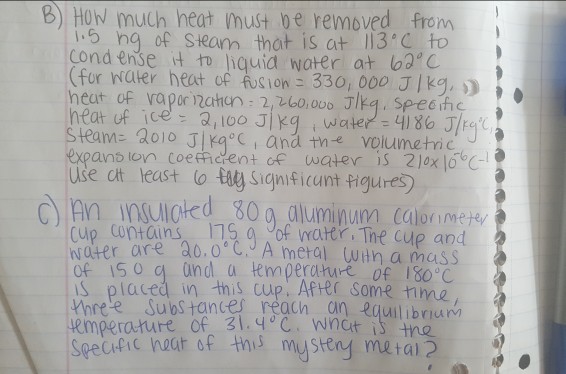 B) How much heat must be removed from
1.5 kg of steam that is at 113°C to
condense it to liquid water at 62°C
(for water heat of fusion = 330,000 J/kg,
heat of vaporization = 2,260,000 J/kg, specific
heat of ice = 2,100 J/kg, water = 4186 J/kg°C,
Steam = 2010 J/kg°C, and the volumetric
expansion coefficient of water is 210x10⁻⁶C⁻¹
use at least 6 significant figures)
C) An insulated 80 g aluminum calorimeter
cup contains 175 g of water. The cup and
water are 20.0°C. A metal with a mass
of 150 g and a temperature of 180°C
is placed in this cup. After some time,
three substances reach an equilibrium
temperature of 31.4°C. What is the
specific heat of this mystery metal?